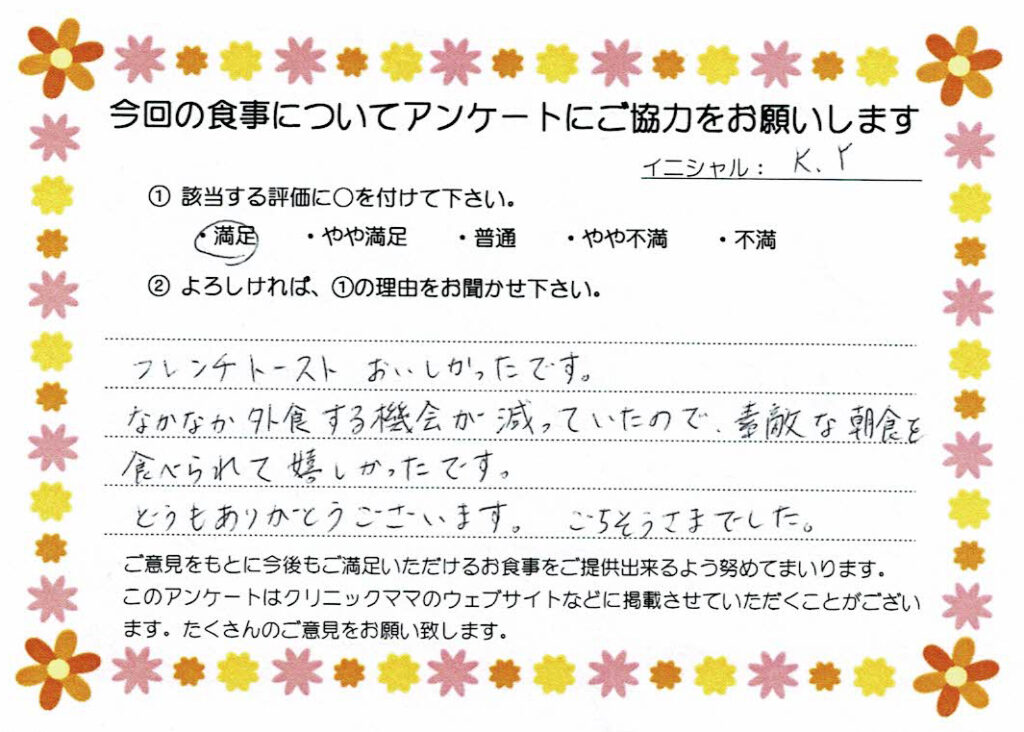 今回の食事についてアンケートにご協力をお願いします
イニシャル： K.Y
① 該当する評価に○を付けて下さい。
・満足 ・やや満足 ・普通 ・やや不満 ・不満
② よろしければ、①の理由をお聞かせ下さい。
フレンチトースト おいしかったです。
なかなか外食する機会が減っていたので、素敵な朝食を
食べられて嬉しかったです。
どうもありがとうございます。 ごちそうさまでした。
ご意見をもとに今後もご満足いただけるお食事をご提供出来るよう努めてまいります。
このアンケートはクリニックママのウェブサイトなどに掲載させていただくことがござい
ます。たくさんのご意見をお願い致します。